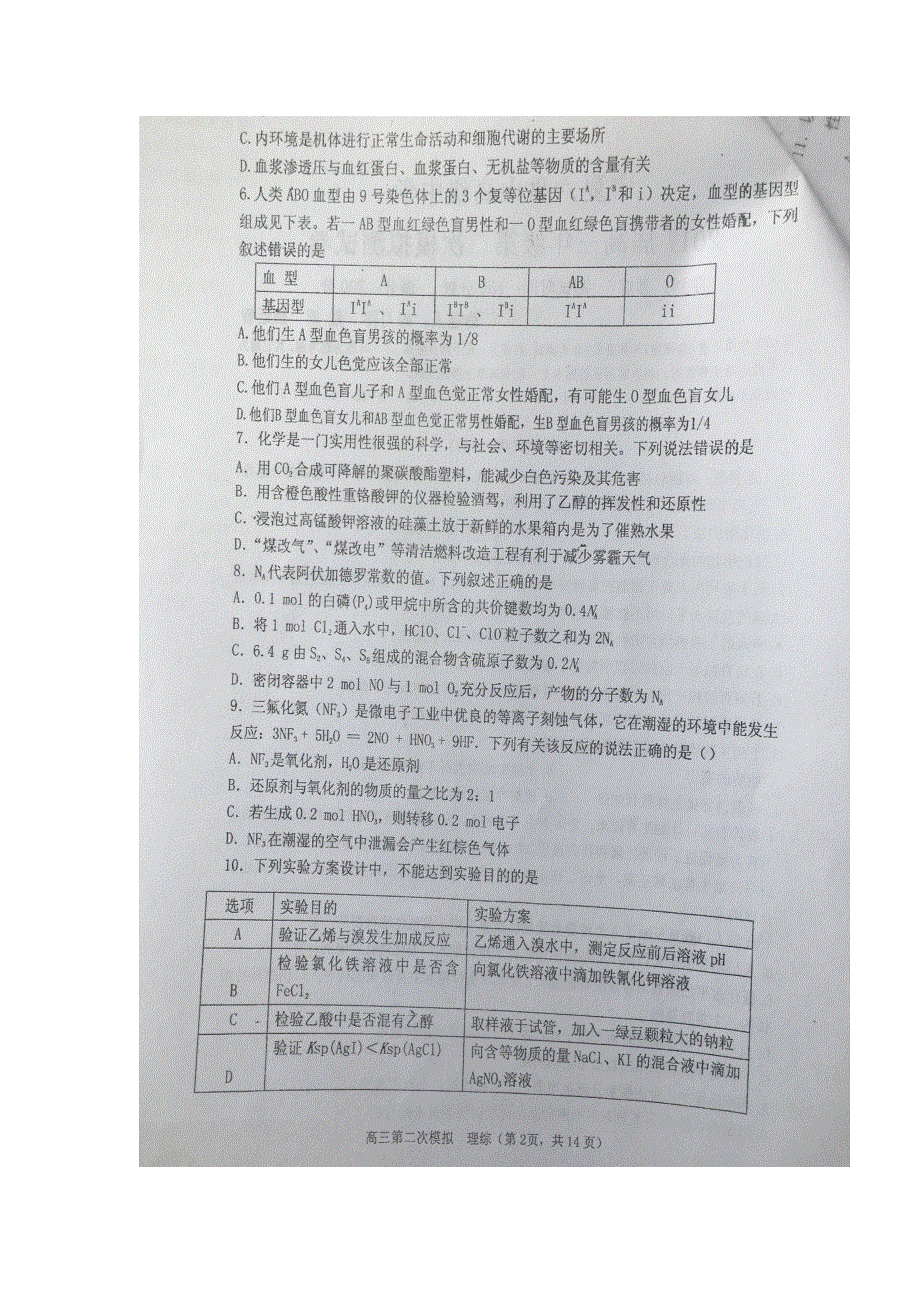 C.内环境是机体进行正常生命活动和细胞代谢的主要场所
D.血浆渗透压与血红蛋白、血浆蛋白、无机盐等物质的含量有关
6.人类ABO血型由9号染色体上的3个复等位基因（Iᴬ，Iᴮ和i）决定，血型的基因型
组成见下表。若一AB型血红绿色盲男性和一O型血红绿色盲携带者的女性婚配，下列
叙述错误的是
血 型 A B AB O
基因型 IᴬIᴬ 、 Iᴬi IᴮIᴮ 、 Iᴮi IᴬIᴬ ii
A.他们生A型血色盲男孩的概率为1/8
B.他们生的女儿色觉应该全部正常
C.他们A型血色盲儿子和A型血色觉正常女性婚配，有可能生O型血色盲女儿
D.他们B型血色盲女儿和AB型血色觉正常男性婚配，生B型血色盲男孩的概率为1/4
7．化学是一门实用性很强的科学，与社会、环境等密切相关。下列说法错误的是
A．用CO₂合成可降解的聚碳酸酯塑料，能减少白色污染及其危害
B．用含橙色酸性重铬酸钾的仪器检验酒驾，利用了乙醇的挥发性和还原性
C．浸泡过高锰酸钾溶液的硅藻土放于新鲜的水果箱内是为了催熟水果
D．“煤改气”、“煤改电”等清洁燃料改造工程有利于减少雾霾天气
8．Nᴀ代表阿伏加德罗常数的值。下列叙述正确的是
A．0.1 mol的白磷(P₄)或甲烷中所含的共价键数均为0.4Nᴀ
B．将1 mol Cl₂通入水中，HClO、Cl⁻、ClO⁻粒子数之和为2Nᴀ
C．6.4 g由S₂、S₄、S₈组成的混合物含硫原子数为0.2Nᴀ
D．密闭容器中2 mol NO与1 mol O₂充分反应后，产物的分子数为Nᴀ
9．三氟化氮（NF₃）是微电子工业中优良的等离子刻蚀气体，它在潮湿的环境中能发生
反应：3NF₃ + 5H₂O ＝ 2NO + HNO₃ + 9HF．下列有关该反应的说法正确的是（）
A．NF₃是氧化剂，H₂O是还原剂
B．还原剂与氧化剂的物质的量之比为2：1
C．若生成0.2 mol HNO₃，则转移0.2 mol电子
D．NF₃在潮湿的空气中泄漏会产生红棕色气体
10．下列实验方案设计中，不能达到实验目的的是
选项 实验目的 实验方案
A 验证乙烯与溴发生加成反应 乙烯通入溴水中，测定反应前后溶液pH
检验氯化铁溶液中是否含 向氯化铁溶液中滴加铁氰化钾溶液
B FeCl₂
C 检验乙酸中是否混有乙醇 取样液于试管，加入一绿豆颗粒大的钠粒
验证Ksp(AgI)＜Ksp(AgCl) 向含等物质的量NaCl、KI的混合液中滴加
D AgNO₃溶液
高三第二次模拟 理综（第2页，共14页）